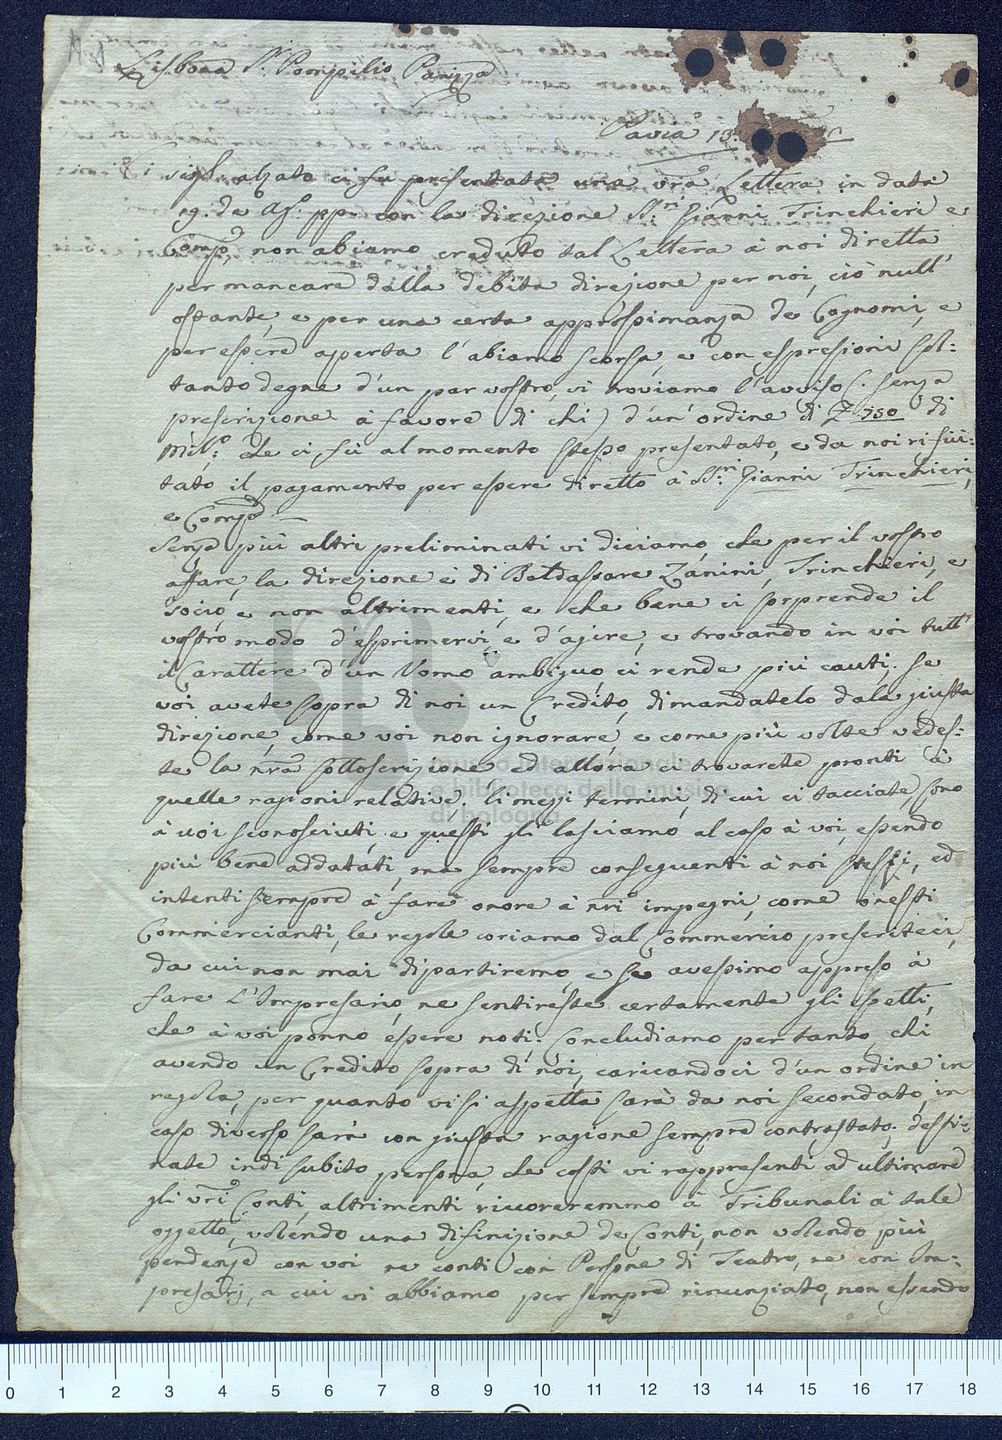 Lisbona Sr. Pompilio Panizza
Pavia 13
Sigl. alzato ci fu presentata una vra Lettera in data
29. da Ag: pp con la direzione SS:ri Gianni Trinchieri e
Comp, non abiamo creduto tal Lettera à noi diretta
per mancare dalla debita direzione per noi, ciò null'
ostante, e per una certa approssimanza de Cognomi, e
per essere aperta l'abiamo scorsa, e con espresioni sol:
tanto degne d'un par vostro, vi troviamo l'avviso (senza
prescrizione à favore di chi) d'un'ordine di Z 750 di
Mil:o che ci fù al momento stesso presentato, e da noi rifiu:
tato il pagamento per essere diretto à SS:ri Gianni Trinchieri,
e Comp
Senza più altri preliminati vi diciamo, che per il vostro
affare, la direzione è di Baldassare Zanini, Trinchieri, e
socio, e non altrimenti, e che bene ci sorprende il
vostro modo d'esprimervi, e d'agire, e trovando in voi tutt'
il Carattere d'un Uomo ambiguo, ci rende più cauti. Se
voi avete sopra di noi un Credito, dimandatelo dala giusta
direzione, come voi non ignorare, e come più volte vedes:
te la nra sottoscrizione ed allora ci trovarete pronti à
quelle ragioni relative. Li mezzi termini, di cui ci tacciate, sono
à voi sconosciuti, e questi gli lasciamo al caso à voi, essendo
più bene addatati, ma sempre conseguenti à noi stessi, ed
intenti sempre à fare onore à nri impegni, come onesti
Commercianti, le regole coriamo dal Commercio prescriteci,
da cui non mai dipartiremo, e se avessimo appreso à
fare l'Impresario, ne sentireste certamente gli effetti,
che à voi ponno essere noti. Concludiamo per tanto, chi
avendo un Credito sopra di noi, caricandoci d'un ordine in
regola, per quanto vi si aspetta sarà da noi secondato, in
caso diverso sarà con giusta ragione sempre contrastato. desti:
nate indi subito persona, che costi vi rappresenti ad ultimare
gli vri Conti, altrimenti ricoreremmo à Tribunali à tale
oggetto, volendo una difinizione de Conti, non volendo più
pendenze con voi ne conti con Persone di Teatro, ne con Im:
presarj, a cui vi abbiamo per sempre rinunziato, non essendo
museo internazionale
e biblioteca della musica
di bologna
0 1 2 3 4 5 6 7 8 9 10 11 12 13 14 15 16 17 18